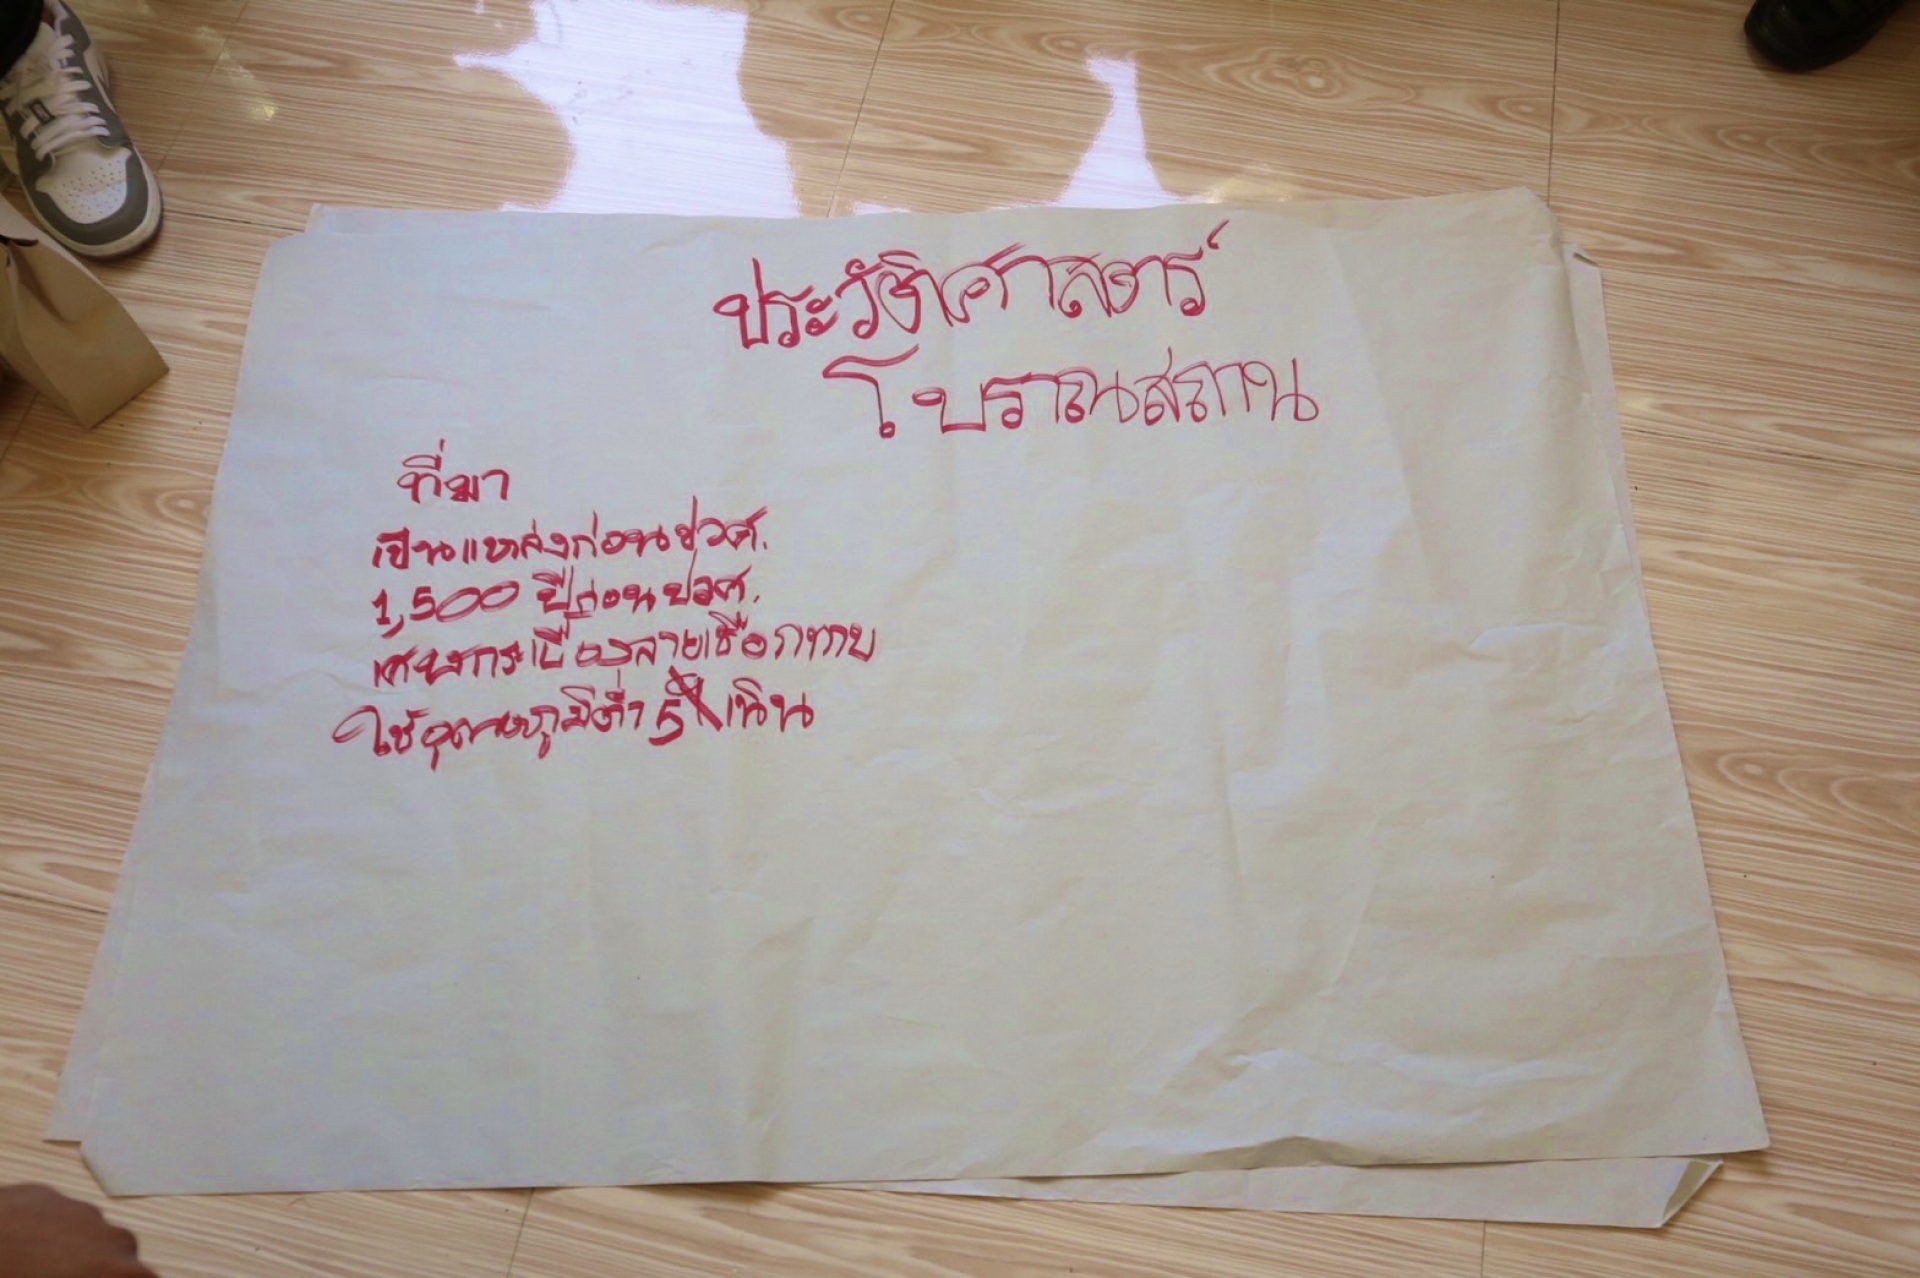 ประวัติศาสตร์
โบราณสถาน
ที่มา
เป็นแหล่งก่อนปวศ.
1,500 ปีก่อนปวศ.
เศษกระเบื้องลายเชือกทาบ
ใช้อุณหภูมิต่ำ 5 เนิน